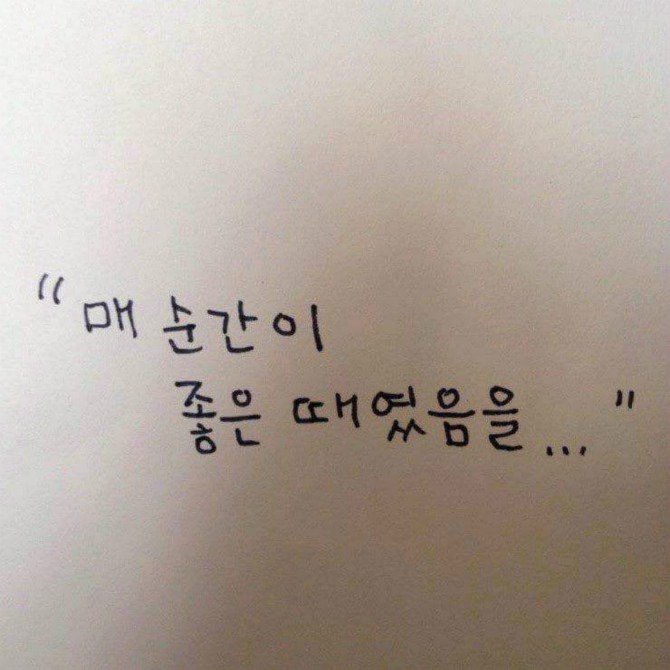 “매 순간이
좋은 때였음을..."